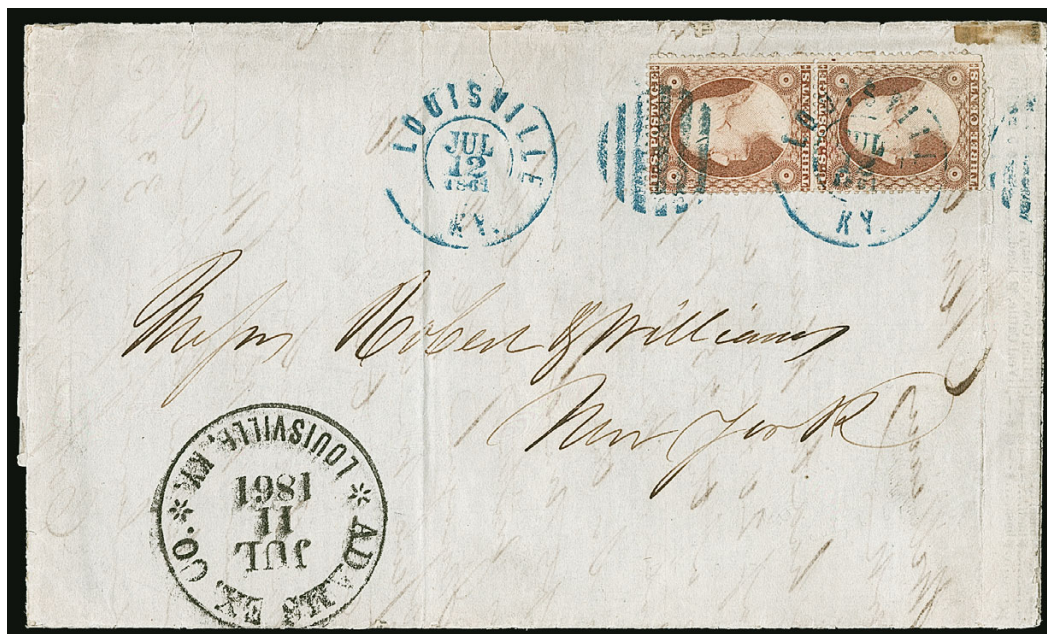 LOUISVILLE
JUL
12
1861
KY.
U.S. POSTAGE
THREE CENTS
U.S. POSTAGE
THREE CENTS
LOUISVILLE
JUL
12
1861
KY.
Messrs Robert & Williams
New York
ADAMS EX. CO.
LOUISVILLE, KY.
JUL
11
1861